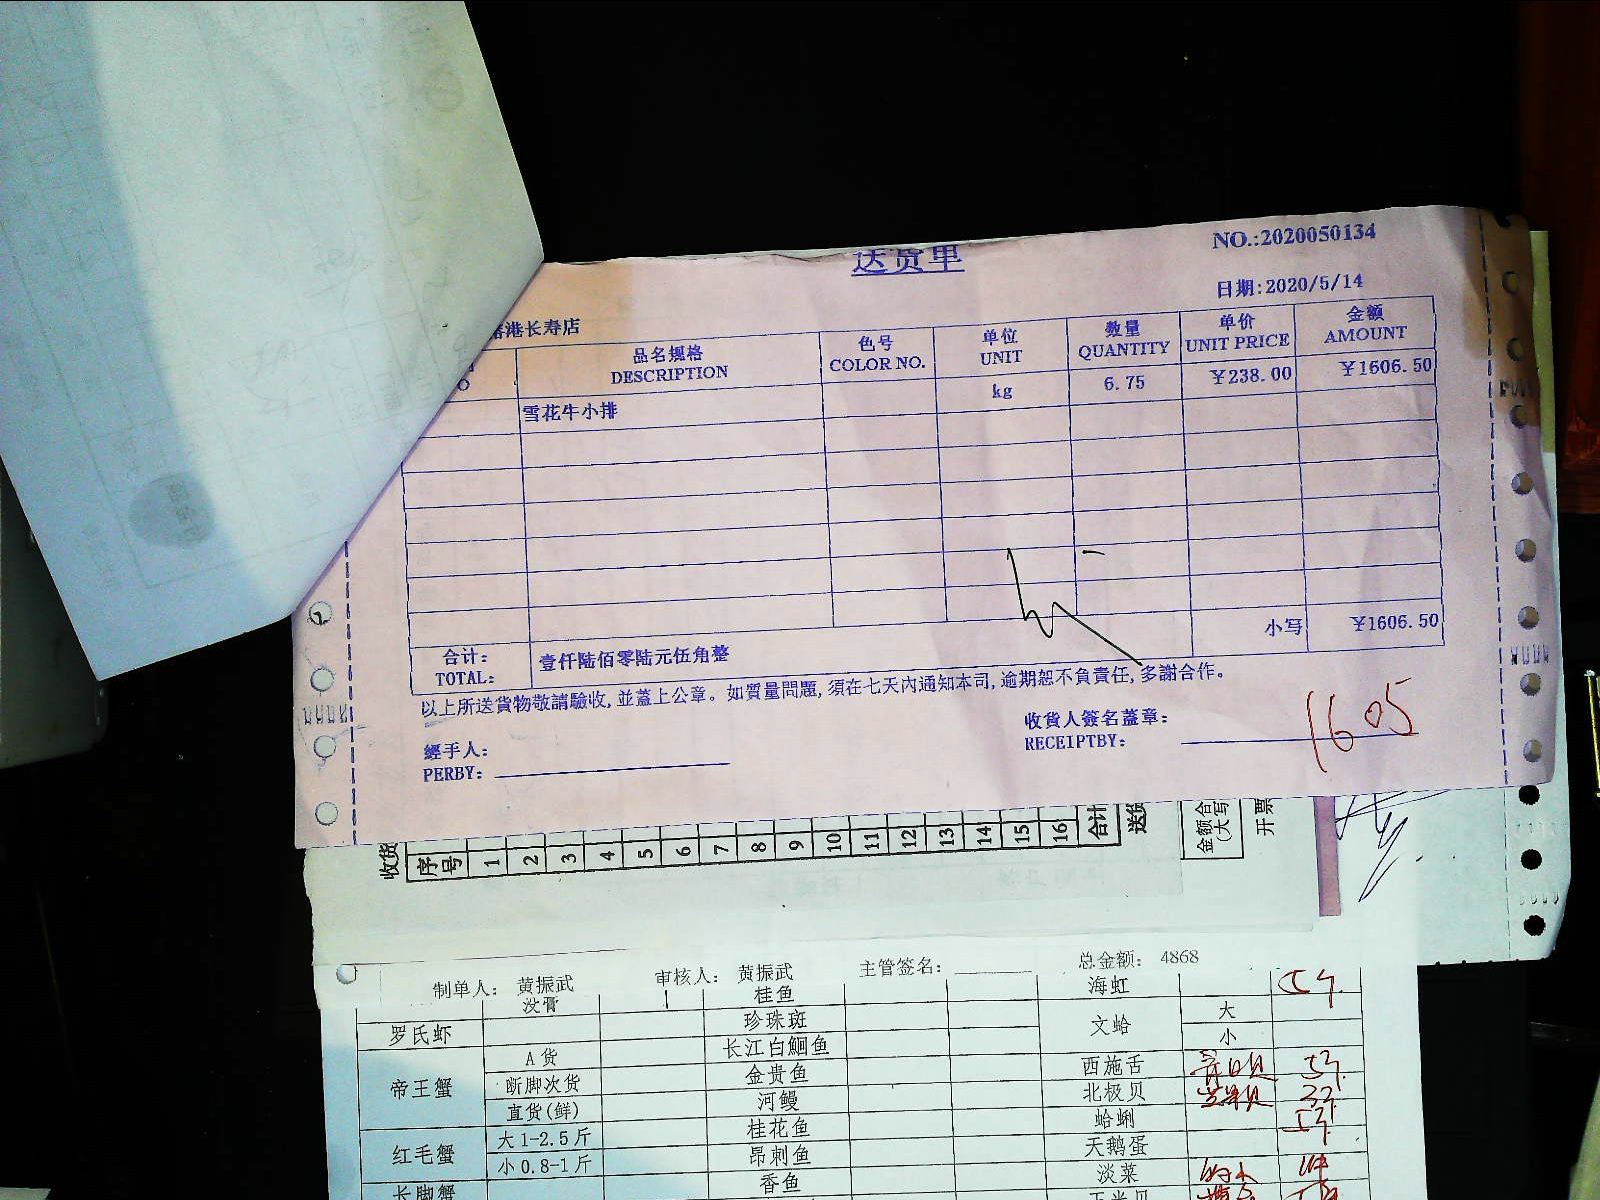 送货单
NO.:2020050134
日期:2020/5/14
港长寿店
O
品名规格
DESCRIPTION
色号
COLOR NO.
单位
UNIT
数量
QUANTITY
单价
UNIT PRICE
金额
AMOUNT
雪花牛小排 kg 6.75 ￥238.00 ￥1606.50
合计:
TOTAL:
壹仟陆佰零陆元伍角整
小写 ￥1606.50
以上所送貨物敬請驗收,並蓋上公章。如質量問題,須在七天內通知本司,逾期恕不負責任,多謝合作。
經手人:
PERBY:
收貨人簽名蓋章:
RECEIPTBY:
1605
收货
序号 1 2 3 4 5 6 7 8 9 10 11 12 13 14 15 16 合计
送货
金额合
(大写
开票
制单人: 黄振武 审核人: 黄振武 主管签名: 总金额: 4868
没膏 桂鱼 海虹
罗氏虾 珍珠斑 文蛤 大
长江白鮰鱼 小
帝王蟹 A 货 金贵鱼 西施舌
断脚次货 河鳗 北极贝
直货(鲜) 桂花鱼 蛤蜊
红毛蟹 大 1-2.5 斤 昂刺鱼 天鹅蛋
小 0.8-1 斤 香鱼 淡菜
长脚蟹